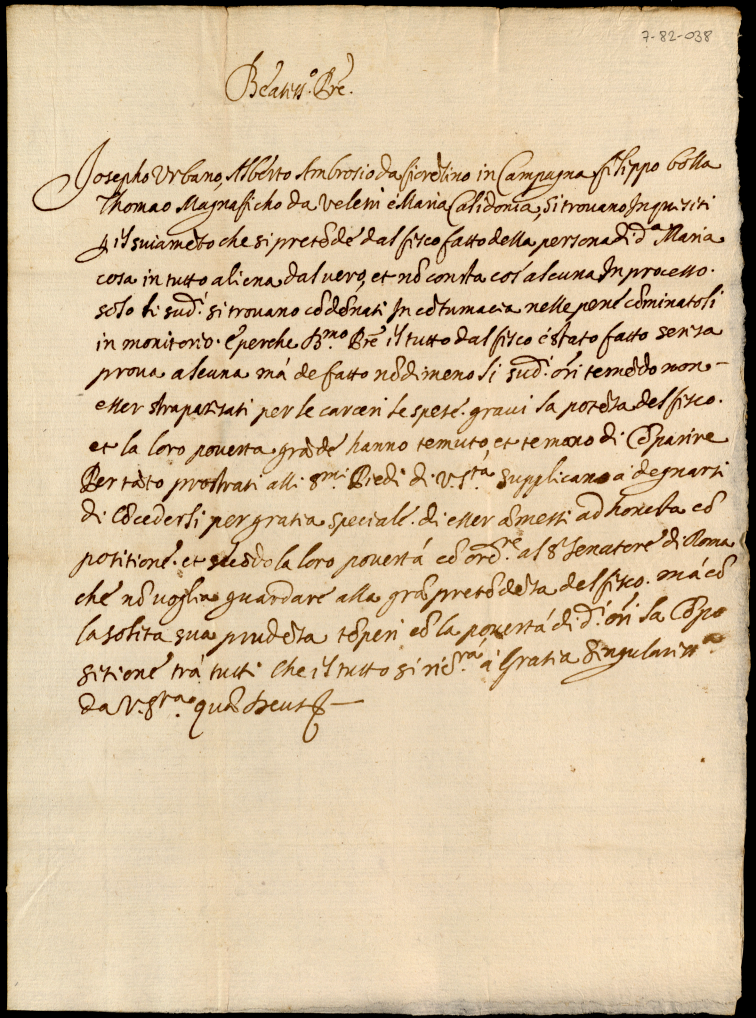 7-82-038
Beatiss.o Pre.
Josepho Urbano, Alberto Ambrosio da fiorētino in Campagna filippo bolla
Thomao Magnaficho da Veletri è Maria Calidonia, si trovano Inquisiti
p il sviamēto che si pretēde dal fisco fatto della persona di d.a Maria
cosa in tutto aliena dal vero, et nō consta cos' alcuna In processo.
solo li sud.i si trovano cōdēnati In cōtumacia nelle pene cōminatoli
in monitorio. È perche B.mo Pre il tutto dal fisco è stato fatto senza
prova alcuna má de fatto nōdimeno li sud.i ōri temēdo non
esser strapazzati per le carceri le spese. gravi la potēza del fisco.
et la loro poverta grāde hanno temuto, et temono di cōparire
Per tāto prostrati alli s.mi Piedi di V. S.tà supplicano a degnarsi
di cōcederli per gratia speciale. di esser āmessi ad honesta cō
positione. et stēdo la loro povertá cō ord.re al S.r Senatore di Roma
che nō voglia guardare alla grā pretēdēza del fisco. má cō
la solita sua prudēza tēperi cō la povertá di d.i ōri la Cōpo
sitione trá tutti che il tutto si ric.rà à Gratia singulariss.a
da V. S.tà quā Deus &